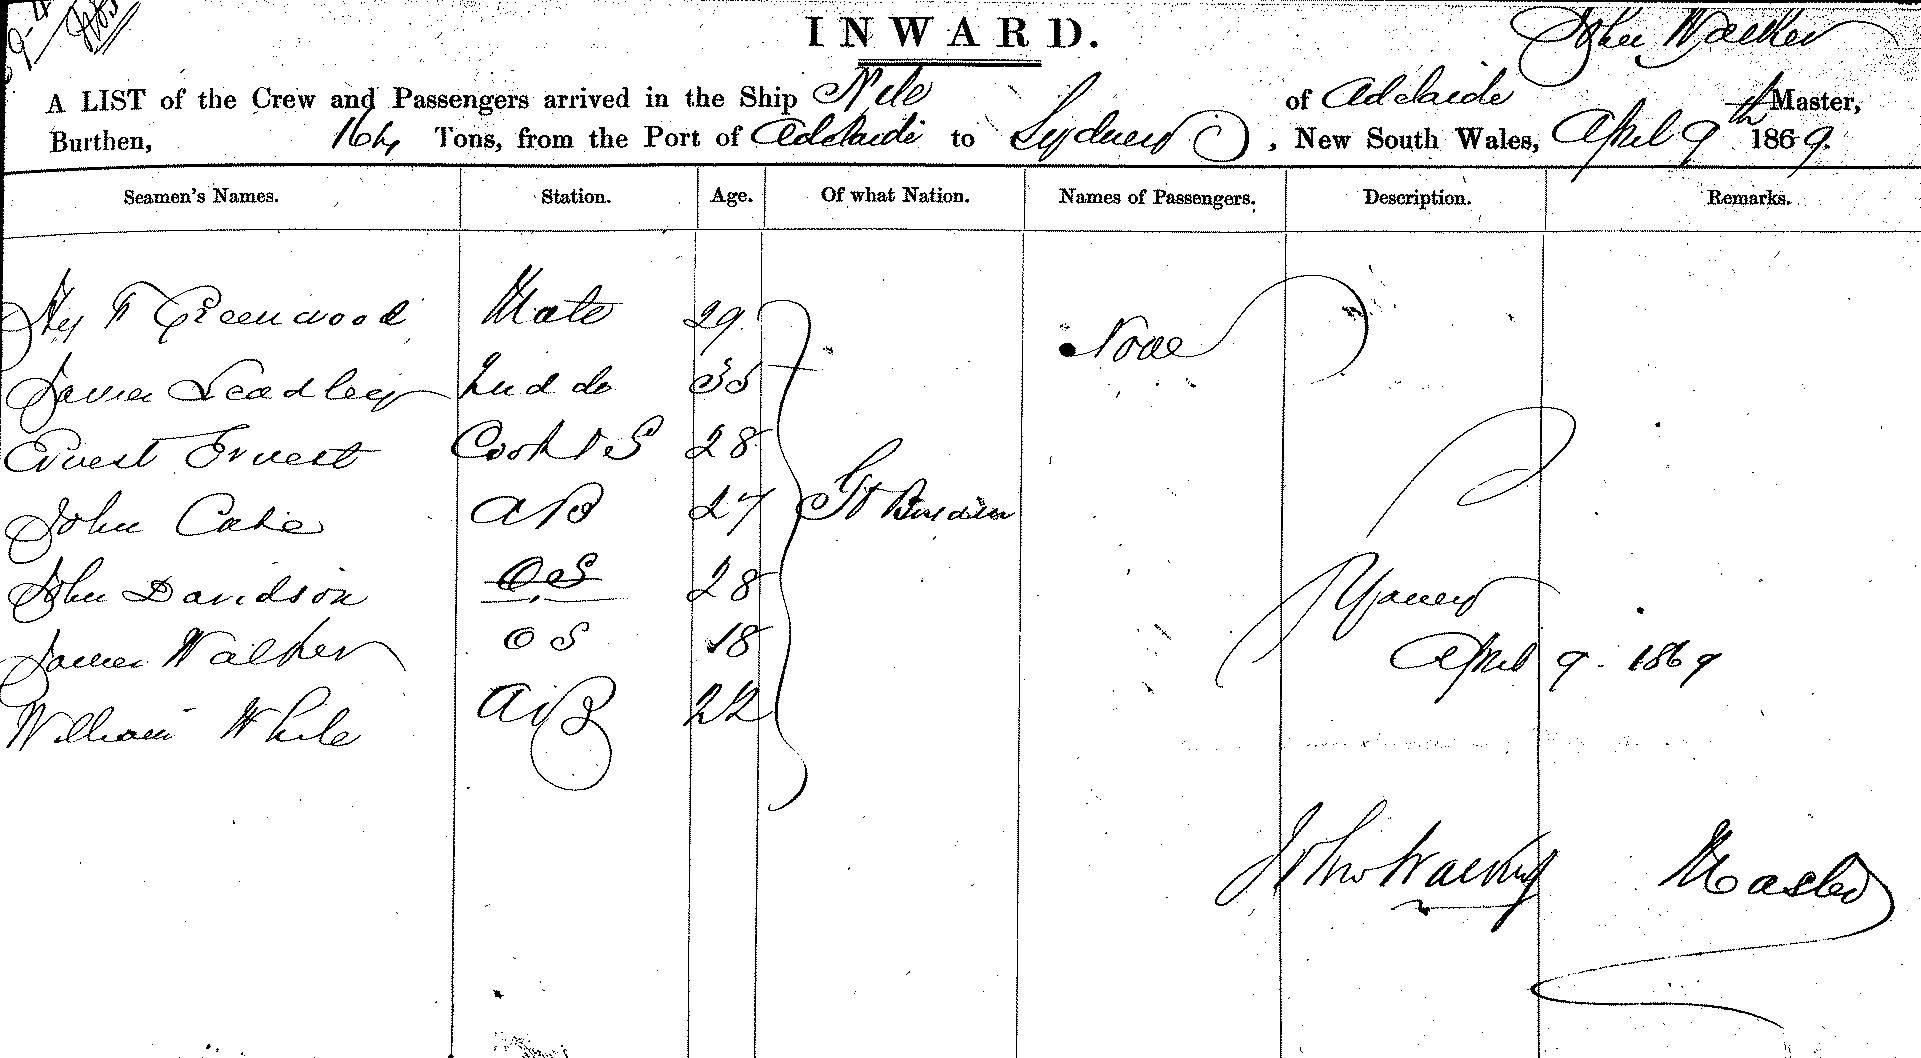 INWARD.
John Walker
A LIST of the Crew and Passengers arrived in the Ship Nile of Adelaide Master,
Burthen, Tons, from the Port of Adelaide to Sydney, New South Wales, April 9th 1869.
Seamen's Names. Station. Age. Of what Nation. Names of Passengers. Description. Remarks.
Hy F Greenwood Mate 29
None
James Leadley 2nd do 35
Ernest Ernest Cook & S 28
John AB 27 Gt Britain
John Davidson OS 28
James Walker OS 18
April 9. 1869
William White AB 22
John Walker Master